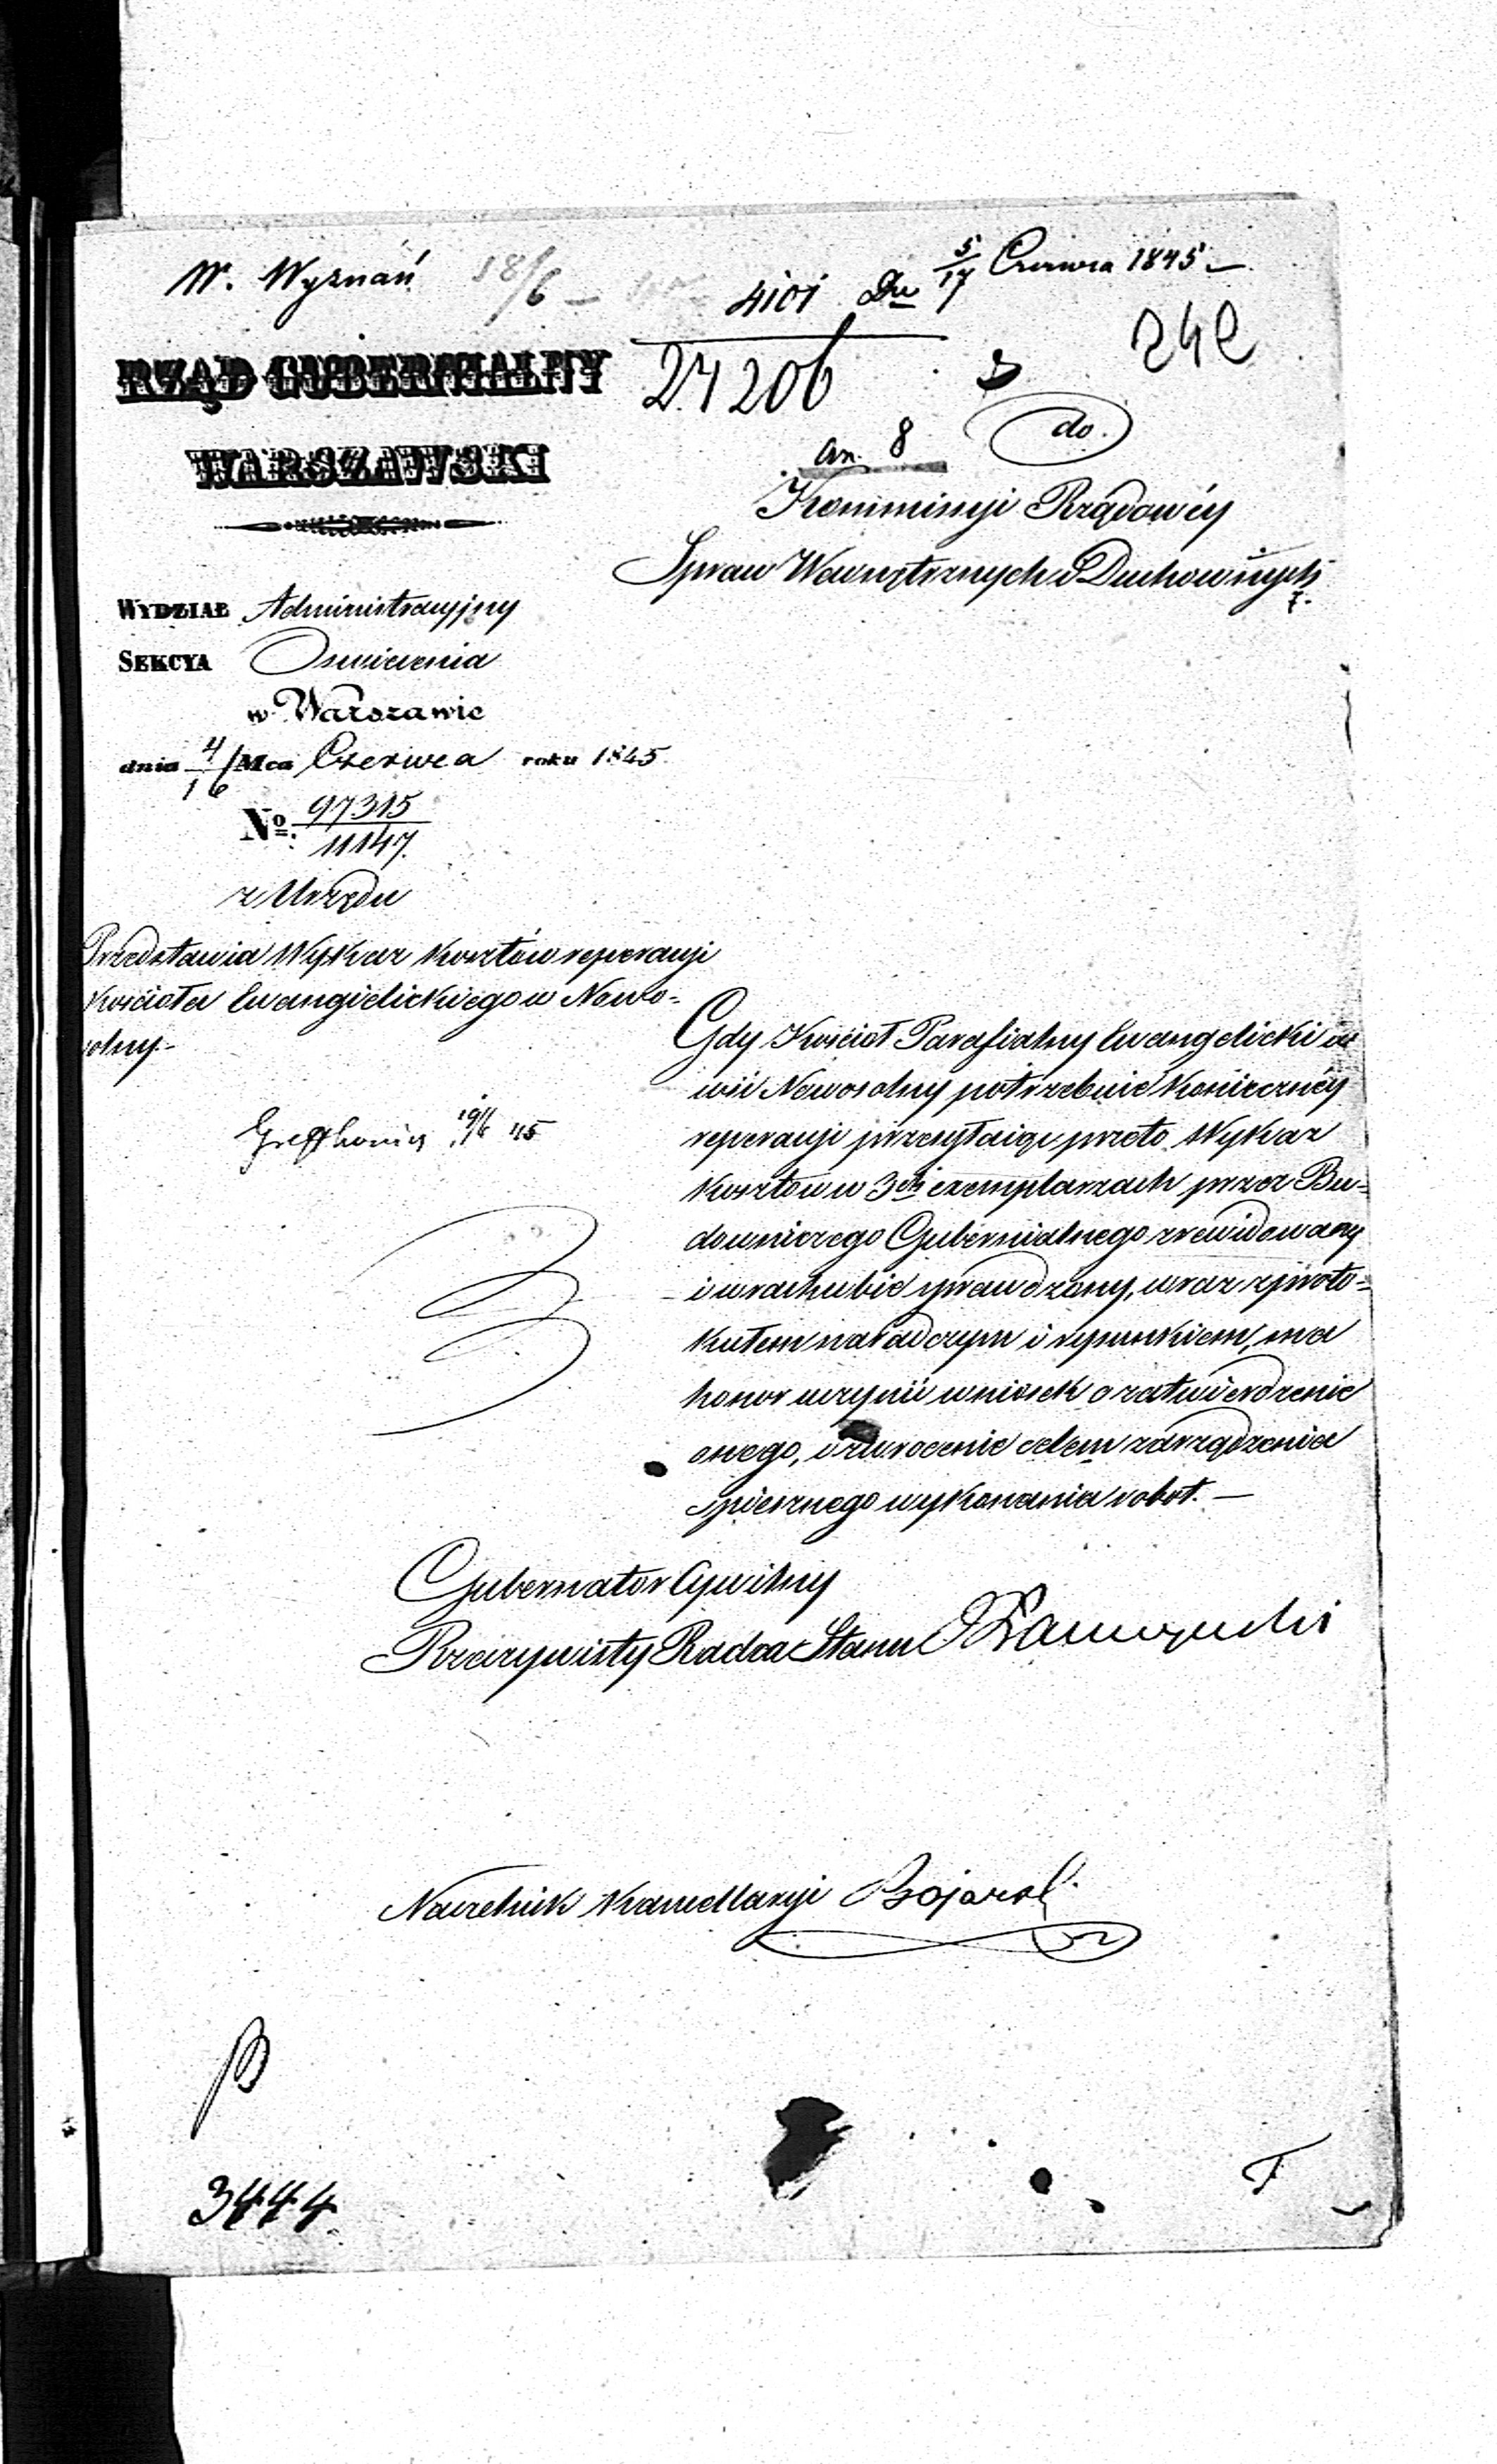 W. Wyznań 18/6 —
4101 Du 5/17 Czerwca 1845 —
27206
242
RZĄD GUBERNIALNY
WARSZAWSKI
an. 8
do.
Kommissyi Rządowéy
Spraw Wewnętrznych i Duchownych
WYDZIAŁ Administracyjny
SEKCYA Oswiecenia
w Warszawie
dnia 4/16 Mca Czerwca roku 1845
No. 97315/11147.
z Urzędu
Przedstawia Wykaz Kosztów reperacyi
Kościoła Ewangielickiego w Nowo=
solny.-
Gdy Kościoł Parafialny Ewangelicki we
wsi Nowosolny potrzebuie Konieczney
reperacyi przesyłaiąc przeto Wykaz
Kosztow w 3ch exemplarzach przez Bu=
downiczego Gubernialnego zrewidowany
i w rachubie sprawdzony, wraz z proto=
kułem naradczym i repunkiem, ma
honor uczynić wniosek o zatwierdzenie
onego, i zwrocenie celem zarządzenia
spiesznego wykonania robot. —
19/6 45
Gubernator Cywilny
Rzeczywisty Radca Stanu
Naczelnik Kancellaryi Bojarsk
3444